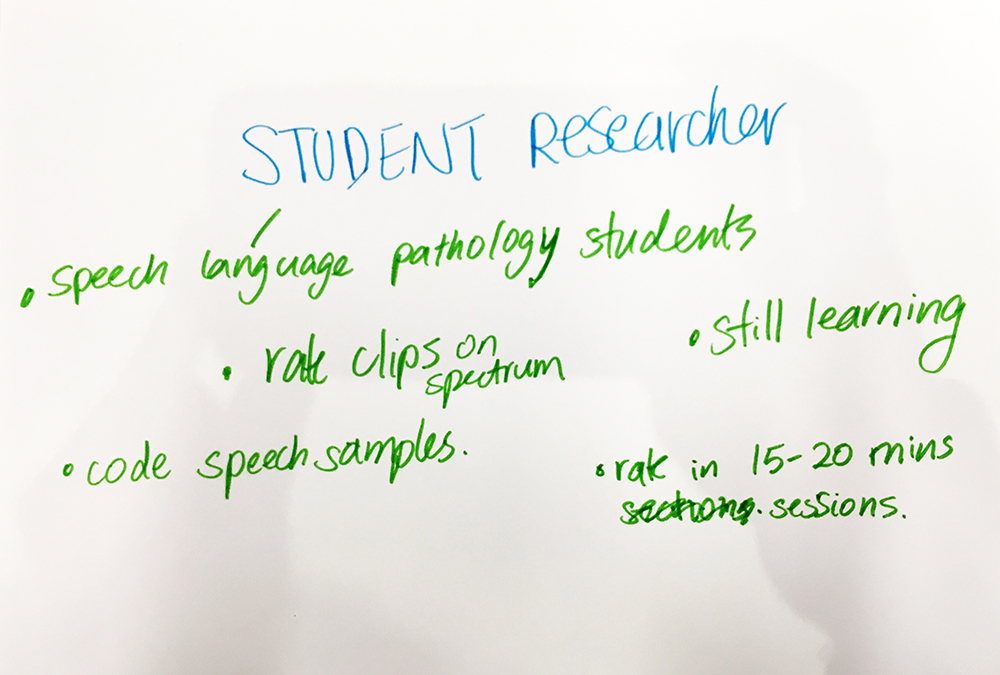 STUDENT Researcher
• speech language pathology students
• still learning
• rate clips on
spectrum
• code speech samples.
• rate in 15-20 mins
sections. sessions.